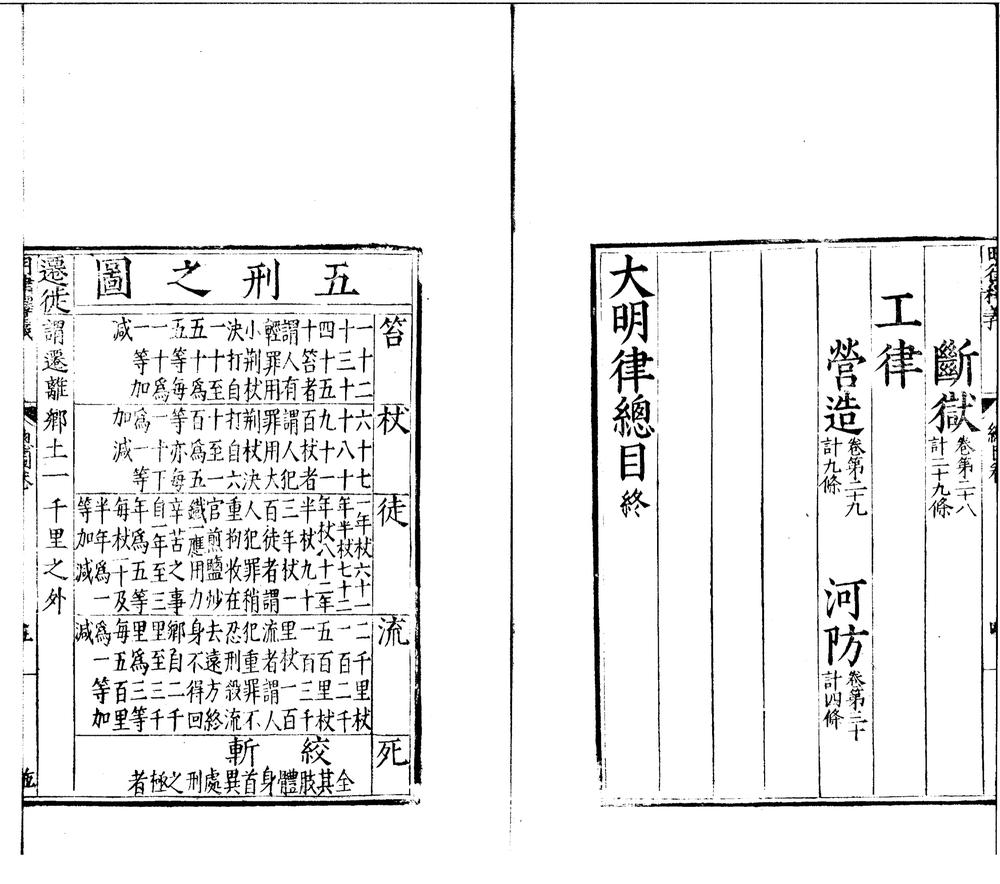 斷獄 卷第二十八
計二十九條
工律
營造 卷第二十九
計九條
河防 卷第三十
計四條
大明律總目 終
五刑之圖
笞
一十二
十三十
四十五
十笞者
謂人有
輕罪用
小荊杖
決打自
一十至
五十爲
五等每
一十爲
一等加
減
杖
六十七
十八十
九十一
百杖者
謂人犯
罪用大
荊杖決
打自六
十至一
百爲五
等亦每
一十下
爲一等
加減
徒
一年杖六十一
年半杖七十二
年杖八十二年
半杖九十
三年杖一
百徒者謂
人犯罪稍
重拘收在
官煎鹽炒
鐵一應用力
辛苦之事
自一年至三
年爲五等
每杖一十及
半年爲一
等加減
流
二千里杖
一百二千
五百里杖
一百三千
里杖一百
流者謂人
犯重罪不
忍刑殺流
去遠方終
身不得回
鄉自二千
里至三千
里爲三等
每五百里
爲一等加
減
死
絞
全其肢體
斬
身首異處
刑之極者
遷徙 謂遷離鄉土一千里之外